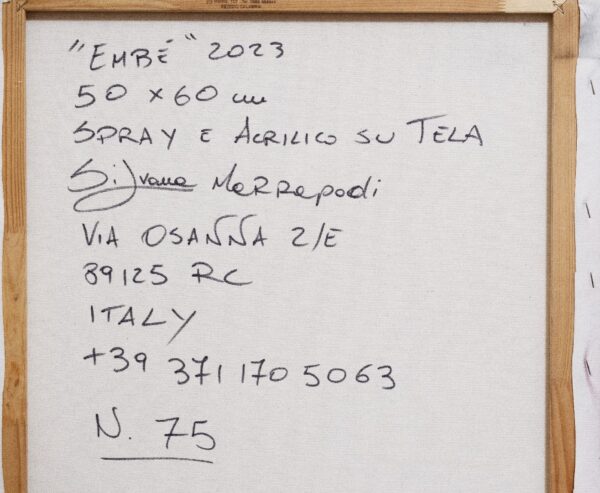 "EMBÉ" 2023
50 x 60 cm
SPRAY E ACRILICO SU TELA
Silvana Marrapodi
VIA OSANNA 2/E
89125 RC
ITALY
+39 371 170 5063
N. 75